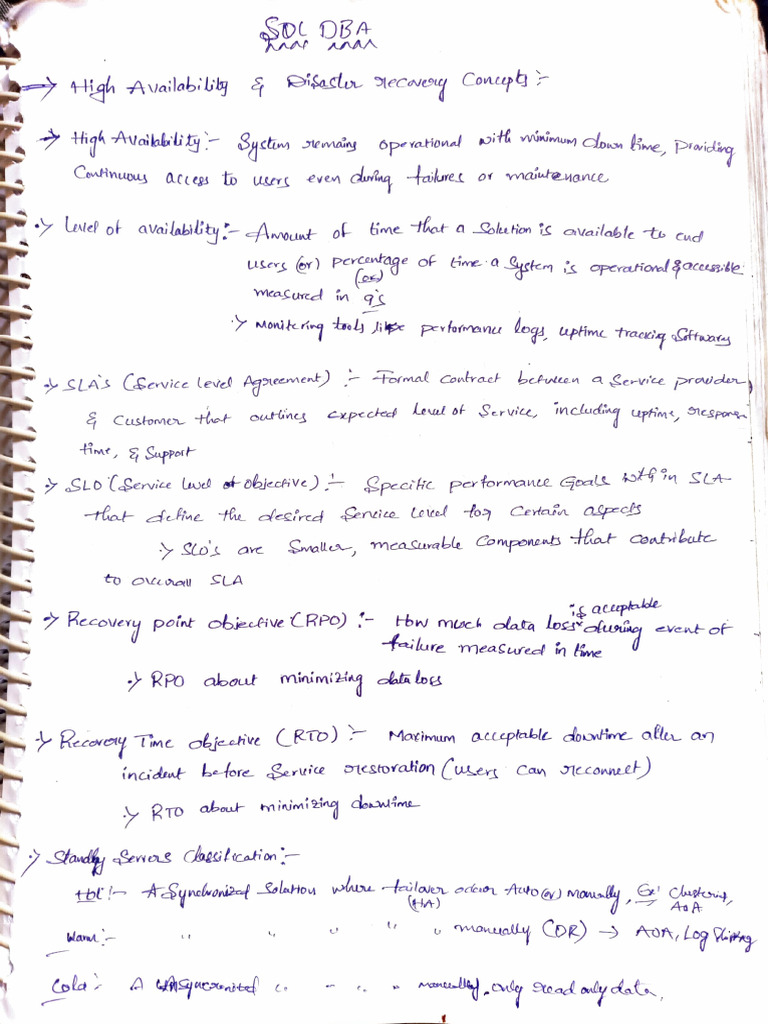 SQL DBA
→ High Availability & Disaster recovery Concepts:-
→ High Availability:- System remains operational with minimum down time, Providing
Continuous access to users even during failures or maintenance
·> Level of availability:- Amount of time that a Solution is available to end
users (or) percentage of time a System is operational & accessible
(or)
measured in 9's
·> Monitering tools like performance logs, uptime tracking Softwares
·> SLA's (Service level Agreement) :- Formal contract between a Service provider
& Customer that outlines expected Level of Service, including uptime, response
time, & Support
·> SLO (Service level of objective) :- Specific performance Goals with in SLA
that define the desired Service level for Certain aspects
·> SLO's are Smaller, measurable Components that contribute
to overall SLA
·> Recovery point objective (RPO) :- How much data loss is acceptable during event of
failure measured in time
·> RPO about minimizing data loss
·> Recovery Time objective (RTO) :- Maximum acceptable downtime after an
incident before Service restoration (users can reconnect)
·> RTO about minimizing downtime
·> Standby Servers Classification:-
Hot:- A Synchronized Solution where failover occur Auto (or) manually, Ex: Clustering,
(HA) AOA
Warm:- " " " " " manually (DR) → AOA, Log Shipping
Cold:- A " " " " manually, only read only data,